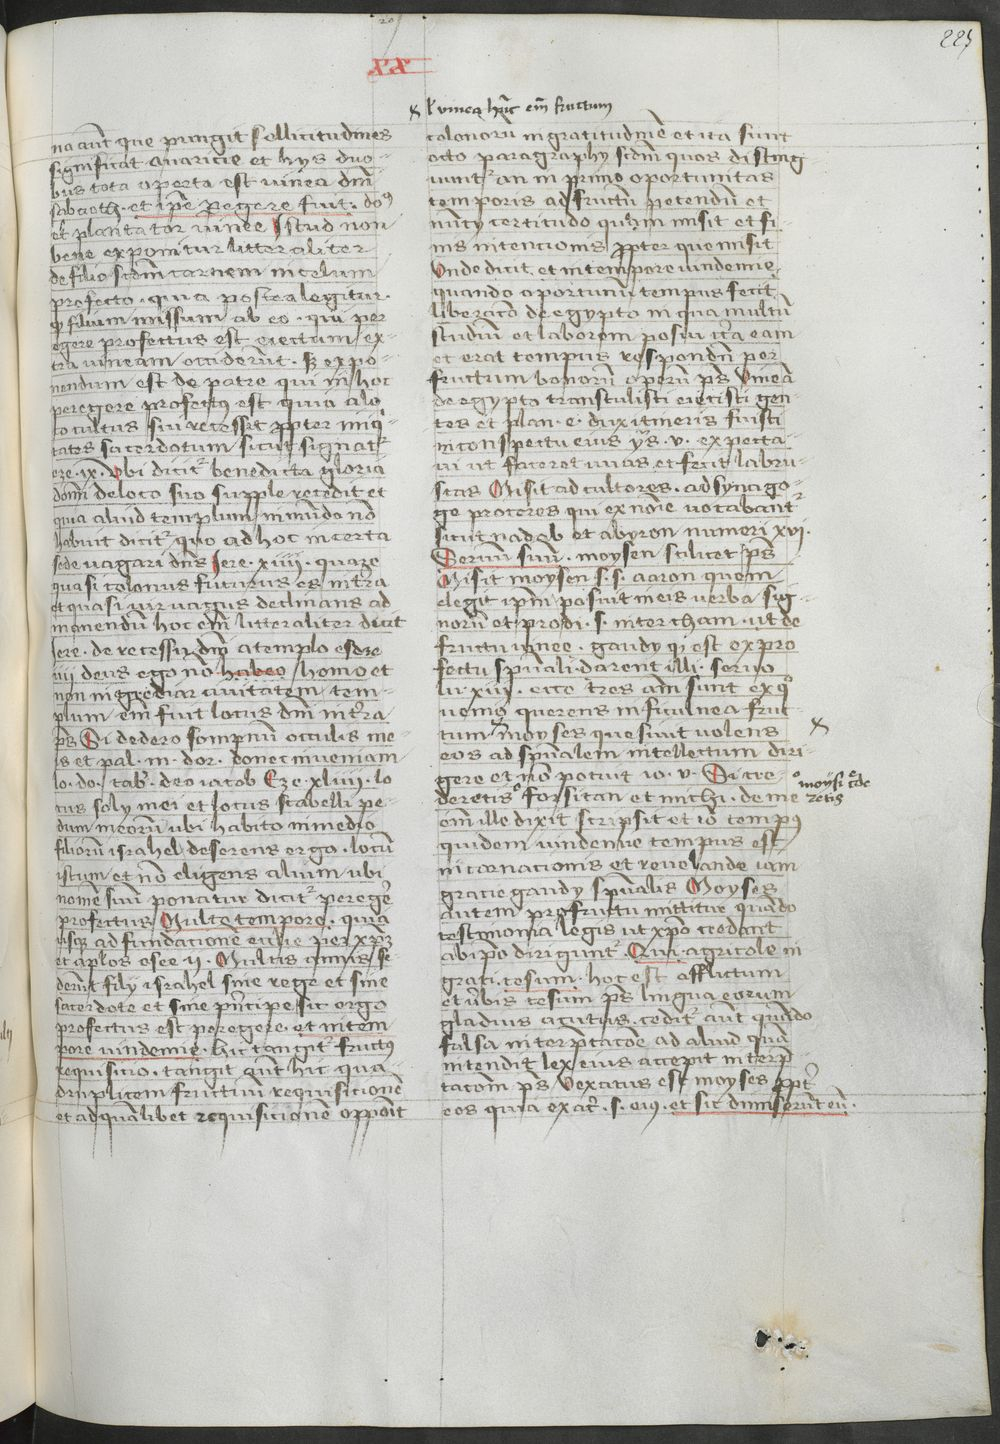 20
225
XX
x l' vinea h̄ic em̄ fructum
na aūt que pungit sollicitudines
significat avaricie et hys duo-
bus tota operta est vinea dn̄i
sabaoth. et ip̄e peregere fuit. do9
est plantator vinee Istud non
bene exponitur litteraliter
de filio scd̄m carnem in celum
profecto. quia postea legitur.
q filium missum ab eo. qui per
egere profectus est eiectum ex-
tra vineam occiderūt. sz expo-
nendum est de patre qui in hoc
peregere profectus est quia a lo
co cultus sui recessit ppter iniqi
tates sacerdotum sicut signatr
eze. ix. Vbi dicitr benedicta gloria
domī de loco suo supple recedit et
quia aliud templum in mūdo nō
habuit dicitr quo ad hoc incerta
sede vagari dn̄s Iere. xiiii. quare
quasi colonus futurus es in tr̄a
et quasi vir vagus declinans ad
manendū hoc em̄ litteraliter dicit
iere. de recessu dn̄i a templo esdre
iiii deus ego nō habeo / homo et
non ingrediar civitatem tem-
plum em̄ fuit locus dn̄i in tr̄a
ps̄ Si dedero sompnū occulis me-
is et pal. m. dor. donec inveniam
lo. do. tab'. deo iacob Eze. xliiii. lo
cus soly mei et locus scabelli pe-
dum meorū ubi habito in medio
filiorū israhel deserens ergo. locū
istum et nō eligens alium ubi
nomē suū ponatur dicitr peregere
profectus. Multo tempore. quia
usqz ad fundacionē ecclie per xp̄m
et apl̄os osee ij. Multis annis se-
derūt filij israhel sine rege et sine
sacerdote et sine pn̄cipe sic ergo
profectus est peregere. et in tem
pore vindemie. hic tangitr fructus
requisicio. tangit aūt hic qua
druplicem fructuū requisicionē
et ad quālibet requisicionē oppōit
colonorū ingratitudinē et ita sunt
octo paragraphy scd̄m quos disting
untr an in primo oportunitas
temporis ad fructū petendū et
nūcy certitudo quēm misit et fi-
nis intencionis ppter que misit
Vnde dicit et in tempore vindemie
quando oportunū tempus fecit
liberacō de egypto in qua multū
studiū et laborem posui circa eam
et erat tempus respondendi per
fructum bonorū operū ps̄ Vineā
de egypto transtulisti eiecisti gen
tes et plan. e. dux itineris fuisti
in conspectu eius ys. v. expecta-
vi ut faceret uvas et fecit labru-
scas Misit ad cultores. ad synago-
ge proceres qui ex noīe vocabantr
sicut nadab et abyron numeri xvi.
Servum suū. moysen scilicet ps̄
Misit moysen s. s. aaron quem
elegit ip̄m posuit in eis verba sig-
norū et prodi. s. in ter cham. ut de
fructu vinee. gaudy qi est ex pro
fectu spūali. darent illi. servo
lu. xiii. ecce tres an̄i sunt ex qo
venio querens in ficulnea fruc-
tum x moyses que sivit volens
eos ad spūalem intellectum diri-
gere et nō potuit io. v. Si cre-
deretis o forsitan et michi. de me
em̄ ille dixit scripsit et iō tempus
quidem vindemie tempus est
incarnacionis et revelande iam
gracie gaudy spūalis Moyses
autem pro fructu mittitur quādo
testimonia legis ut xp̄o credant
ab ip̄o dirigunt. Qui. agricole in
grati. cesum. hoc est afflictum
et v̄bis cesum ps̄ lingua eorum
gladius acutus. cedit' aūt quādo
falsa interp̄tacōe ad aliud quā
intendit lex eius accepit interp̄
tacōm ps̄ Vexatus est moyses ppt'
eos quia exac'. s. eius. et sic dimiserūt eū.
x
o moysi crede
retis